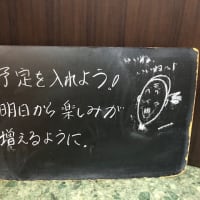 予定を入れよう!
明日から楽しみが
増えるように、